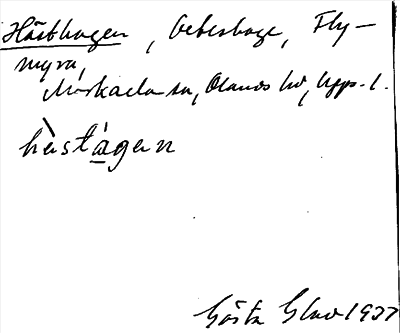 Hästhagen, Beteshage, Fly-
myra,
Morkarla sn, Olands hd, Uppl.
hästagen
Gösta Glad 1937